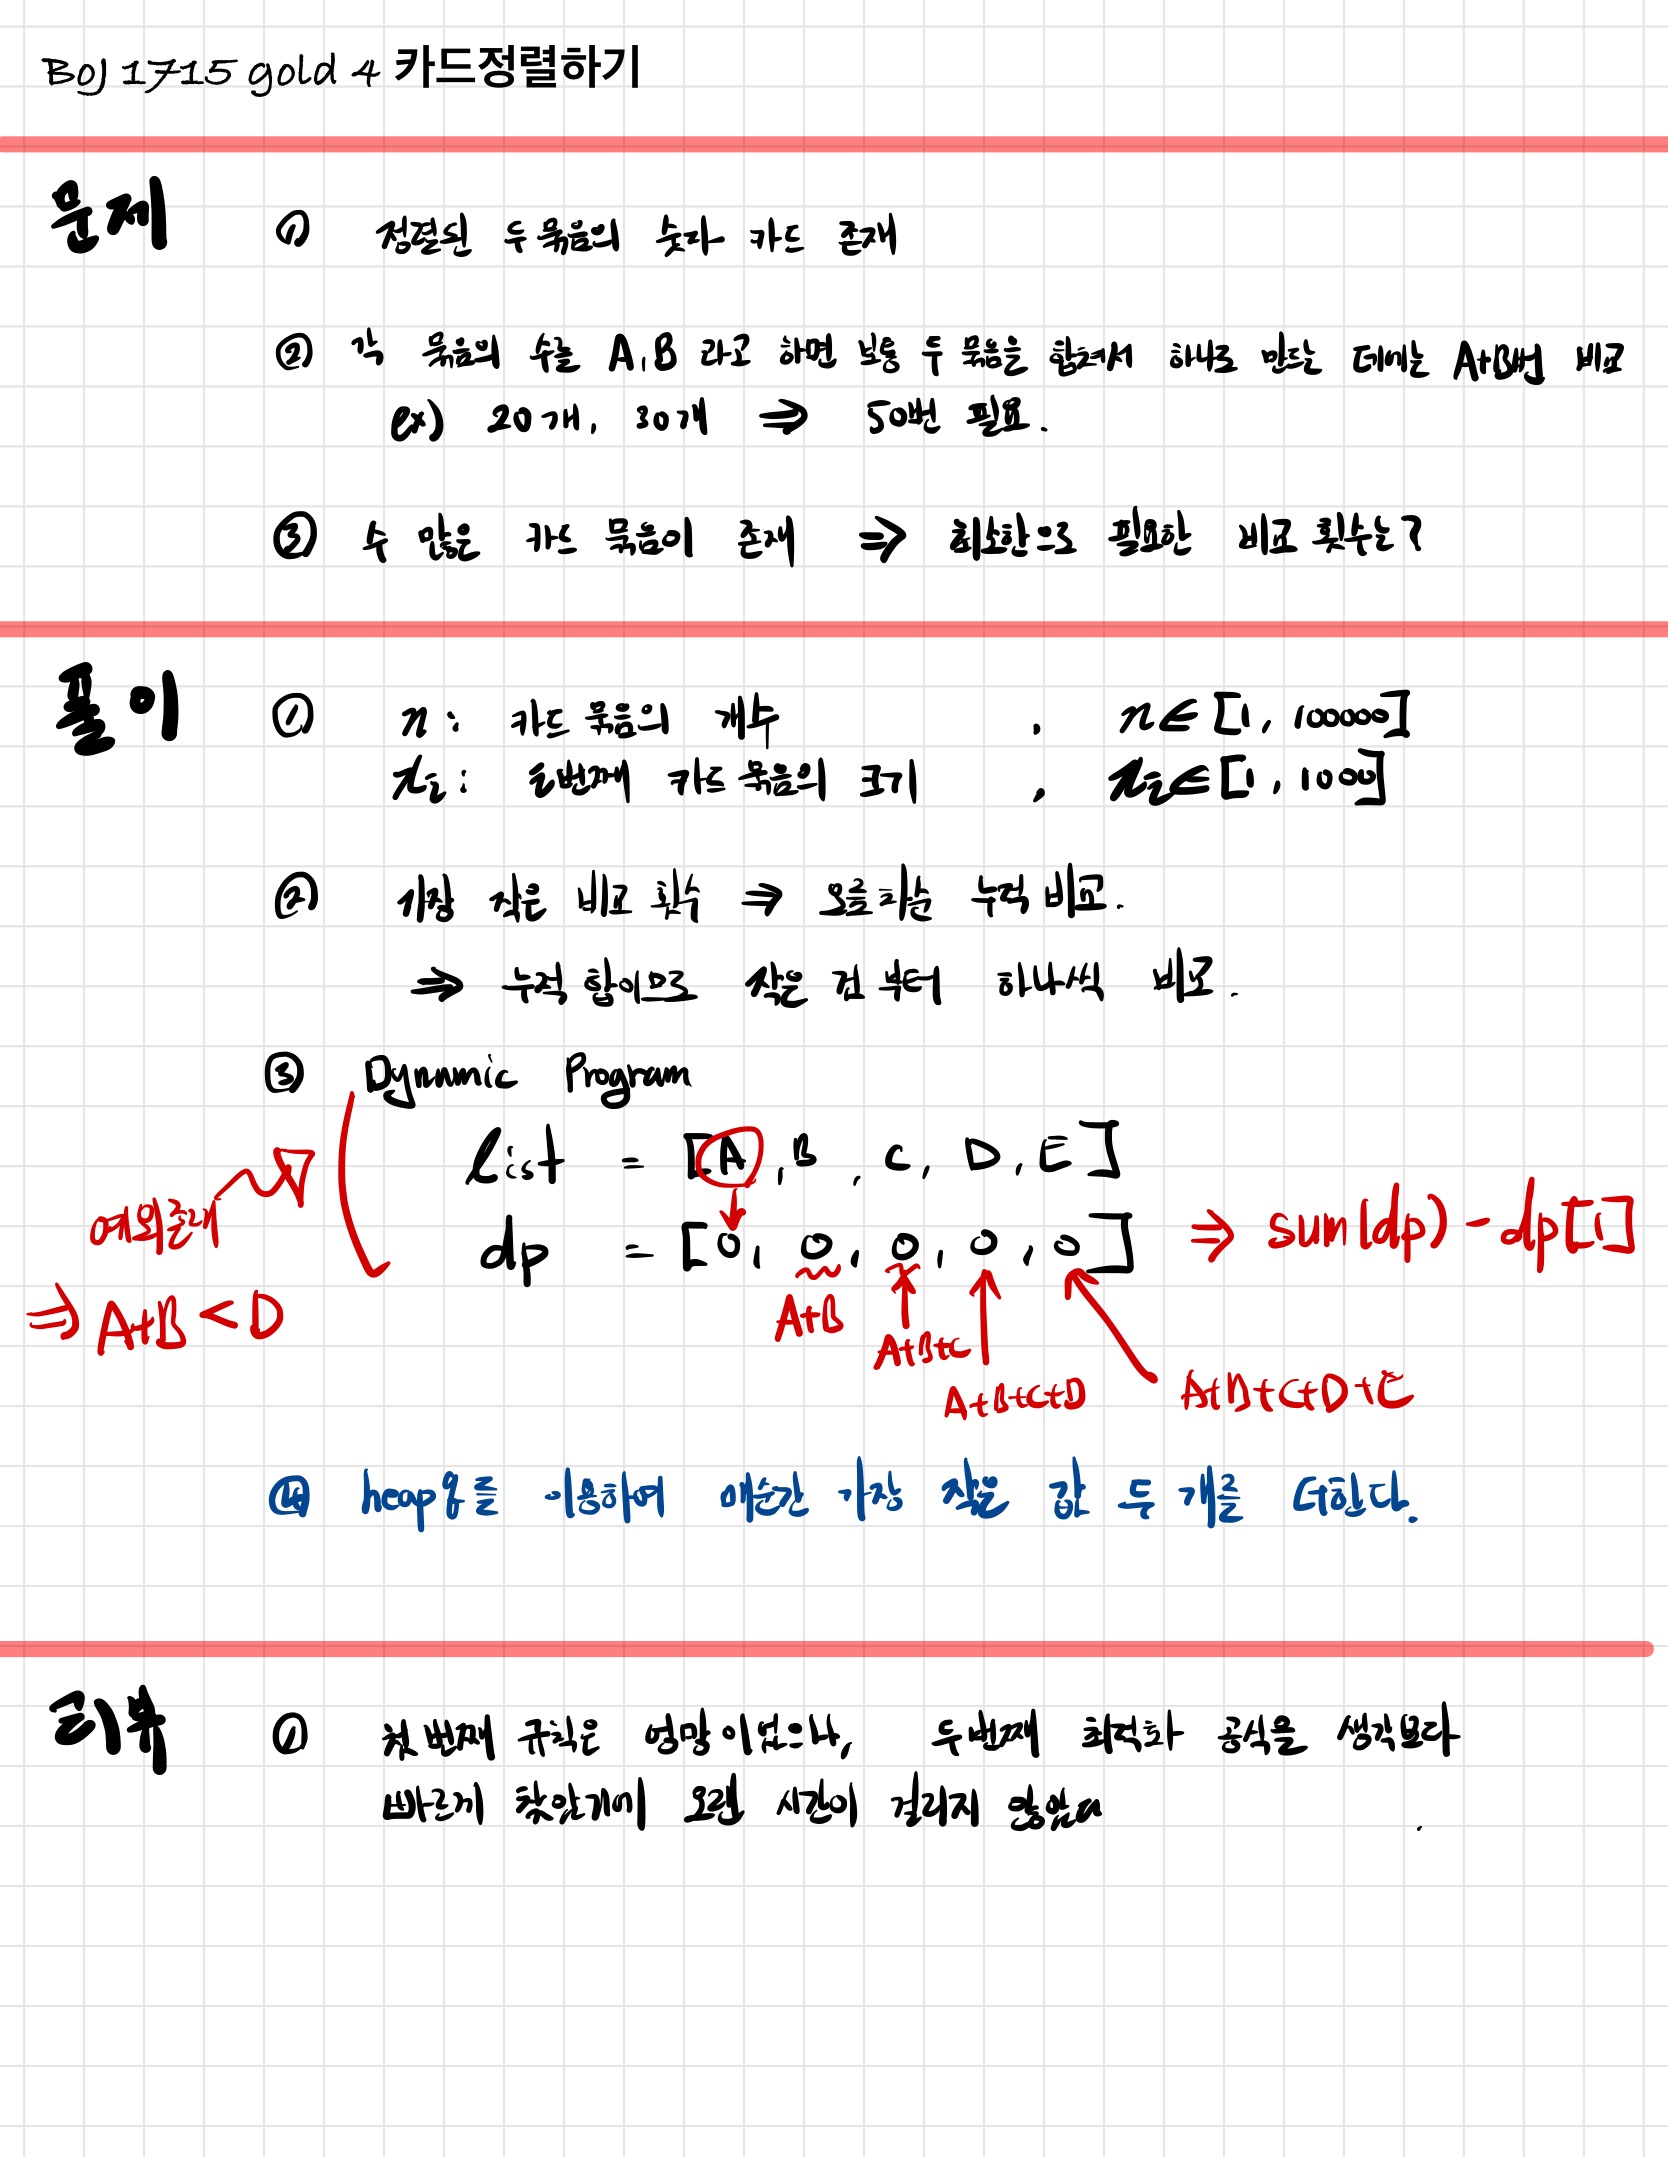 BOJ 1715 gold 4 카드정렬하기
문제
① 정렬된 두 묶음의 숫자 카드 존재
② 각 묶음의 수를 A, B 라고 하면 보통 두 묶음을 합쳐서 하나로 만드는 데에는 A+B번 비교
ex) 20개, 30개 ⇒ 50번 필요.
③ 수 많은 카드 묶음이 존재 ⇒ 최소한으로 필요한 비교 횟수는?
풀이
① n : 카드 묶음의 개수 , n∈[1, 100000]
xᵢ : i번째 카드 묶음의 크기 , xᵢ∈[1, 1000]
② 가장 작은 비교 횟수 ⇒ 오름차순 누적 비교.
⇒ 누적 합이므로 작은 것 부터 하나씩 비교.
③ Dynnmic Program
list = [A, B, C, D, E]
예외존재
dp = [0, 0, 0, 0, 0] ⇒ sum(dp) - dp[1]
⇒ A+B < D
A+B
A+B+C
A+B+C+D
A+B+C+D+E
④ heap을 이용하여 매순간 가장 작은 값 두 개를 더한다.
리뷰
① 첫 번째 규칙은 엉망이었으나, 두번째 최적화 공식을 생각보다
빠르게 찾았기에 오랜 시간이 걸리지 않았다.